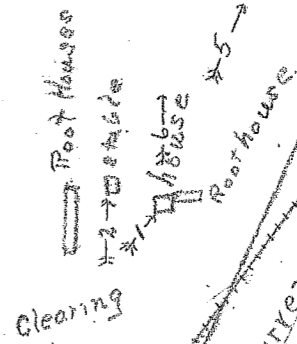 Root Houses
#2 → stable
#1 → house
#6 →
#5 →
Root house
Clearing